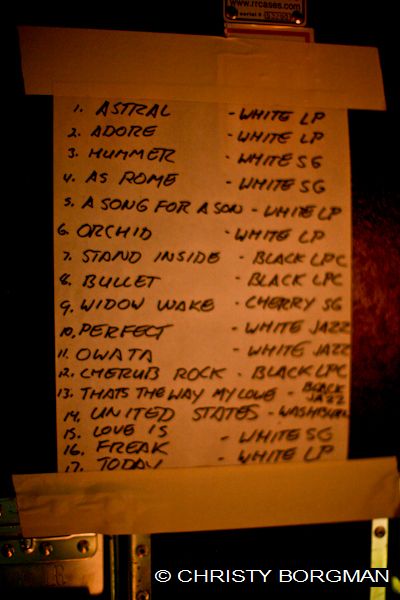 www.rrcases.com
serial #
1. ASTRAL - WHITE LP
2. ADORE - WHITE LP
3. HUMMER - WHITE SG
4. AS ROME - WHITE SG
5. A SONG FOR A SON - WHITE LP
6. ORCHID - WHITE LP
7. STAND INSIDE - BLACK LPC
8. BULLET - BLACK LPC
9. WIDOW WAKE - CHERRY SG
10. PERFECT - WHITE JAZZ
11. OWATA - WHITE JAZZ
12. CHERUB ROCK - BLACK LPC
13. THATS THE WAY MY LOVE - BLACK JAZZ
14. UNITED STATES - WASHBURN
15. LOVE IS - WHITE SG
16. FREAK - WHITE LP
17. TODAY
© CHRISTY BORGMAN